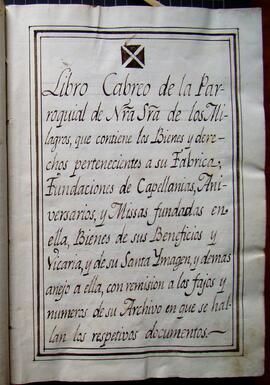 Libro Cabreo de la Par-
roquial de Nr̃a Sr̃a de los Mi-
lagros, que contiene los Bienes y dere-
chos pertenecientes a su Fabrica,
Fundaciones de Capellanias, Ani-
versarios, y Missas fundadas en
ella, Bienes de sus Beneficios y
Vicaria, y de su Santa Ymagen, y demas
anejo a ella, con remision a los fajos y
numeros de su Archivo en que se ha-
llan los respetivos documentos.